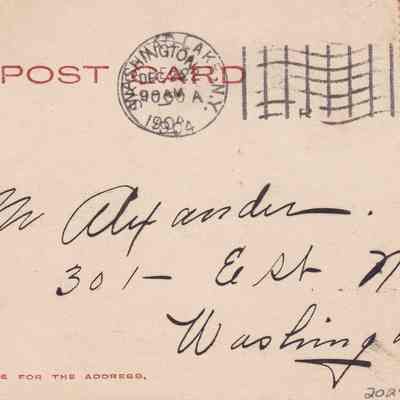 POST CARD
WASHINGTON
LAKE N.Y.
DEC
1904
Alexander.
301 – E St. N
Washing
E FOR THE ADDRESS.
202